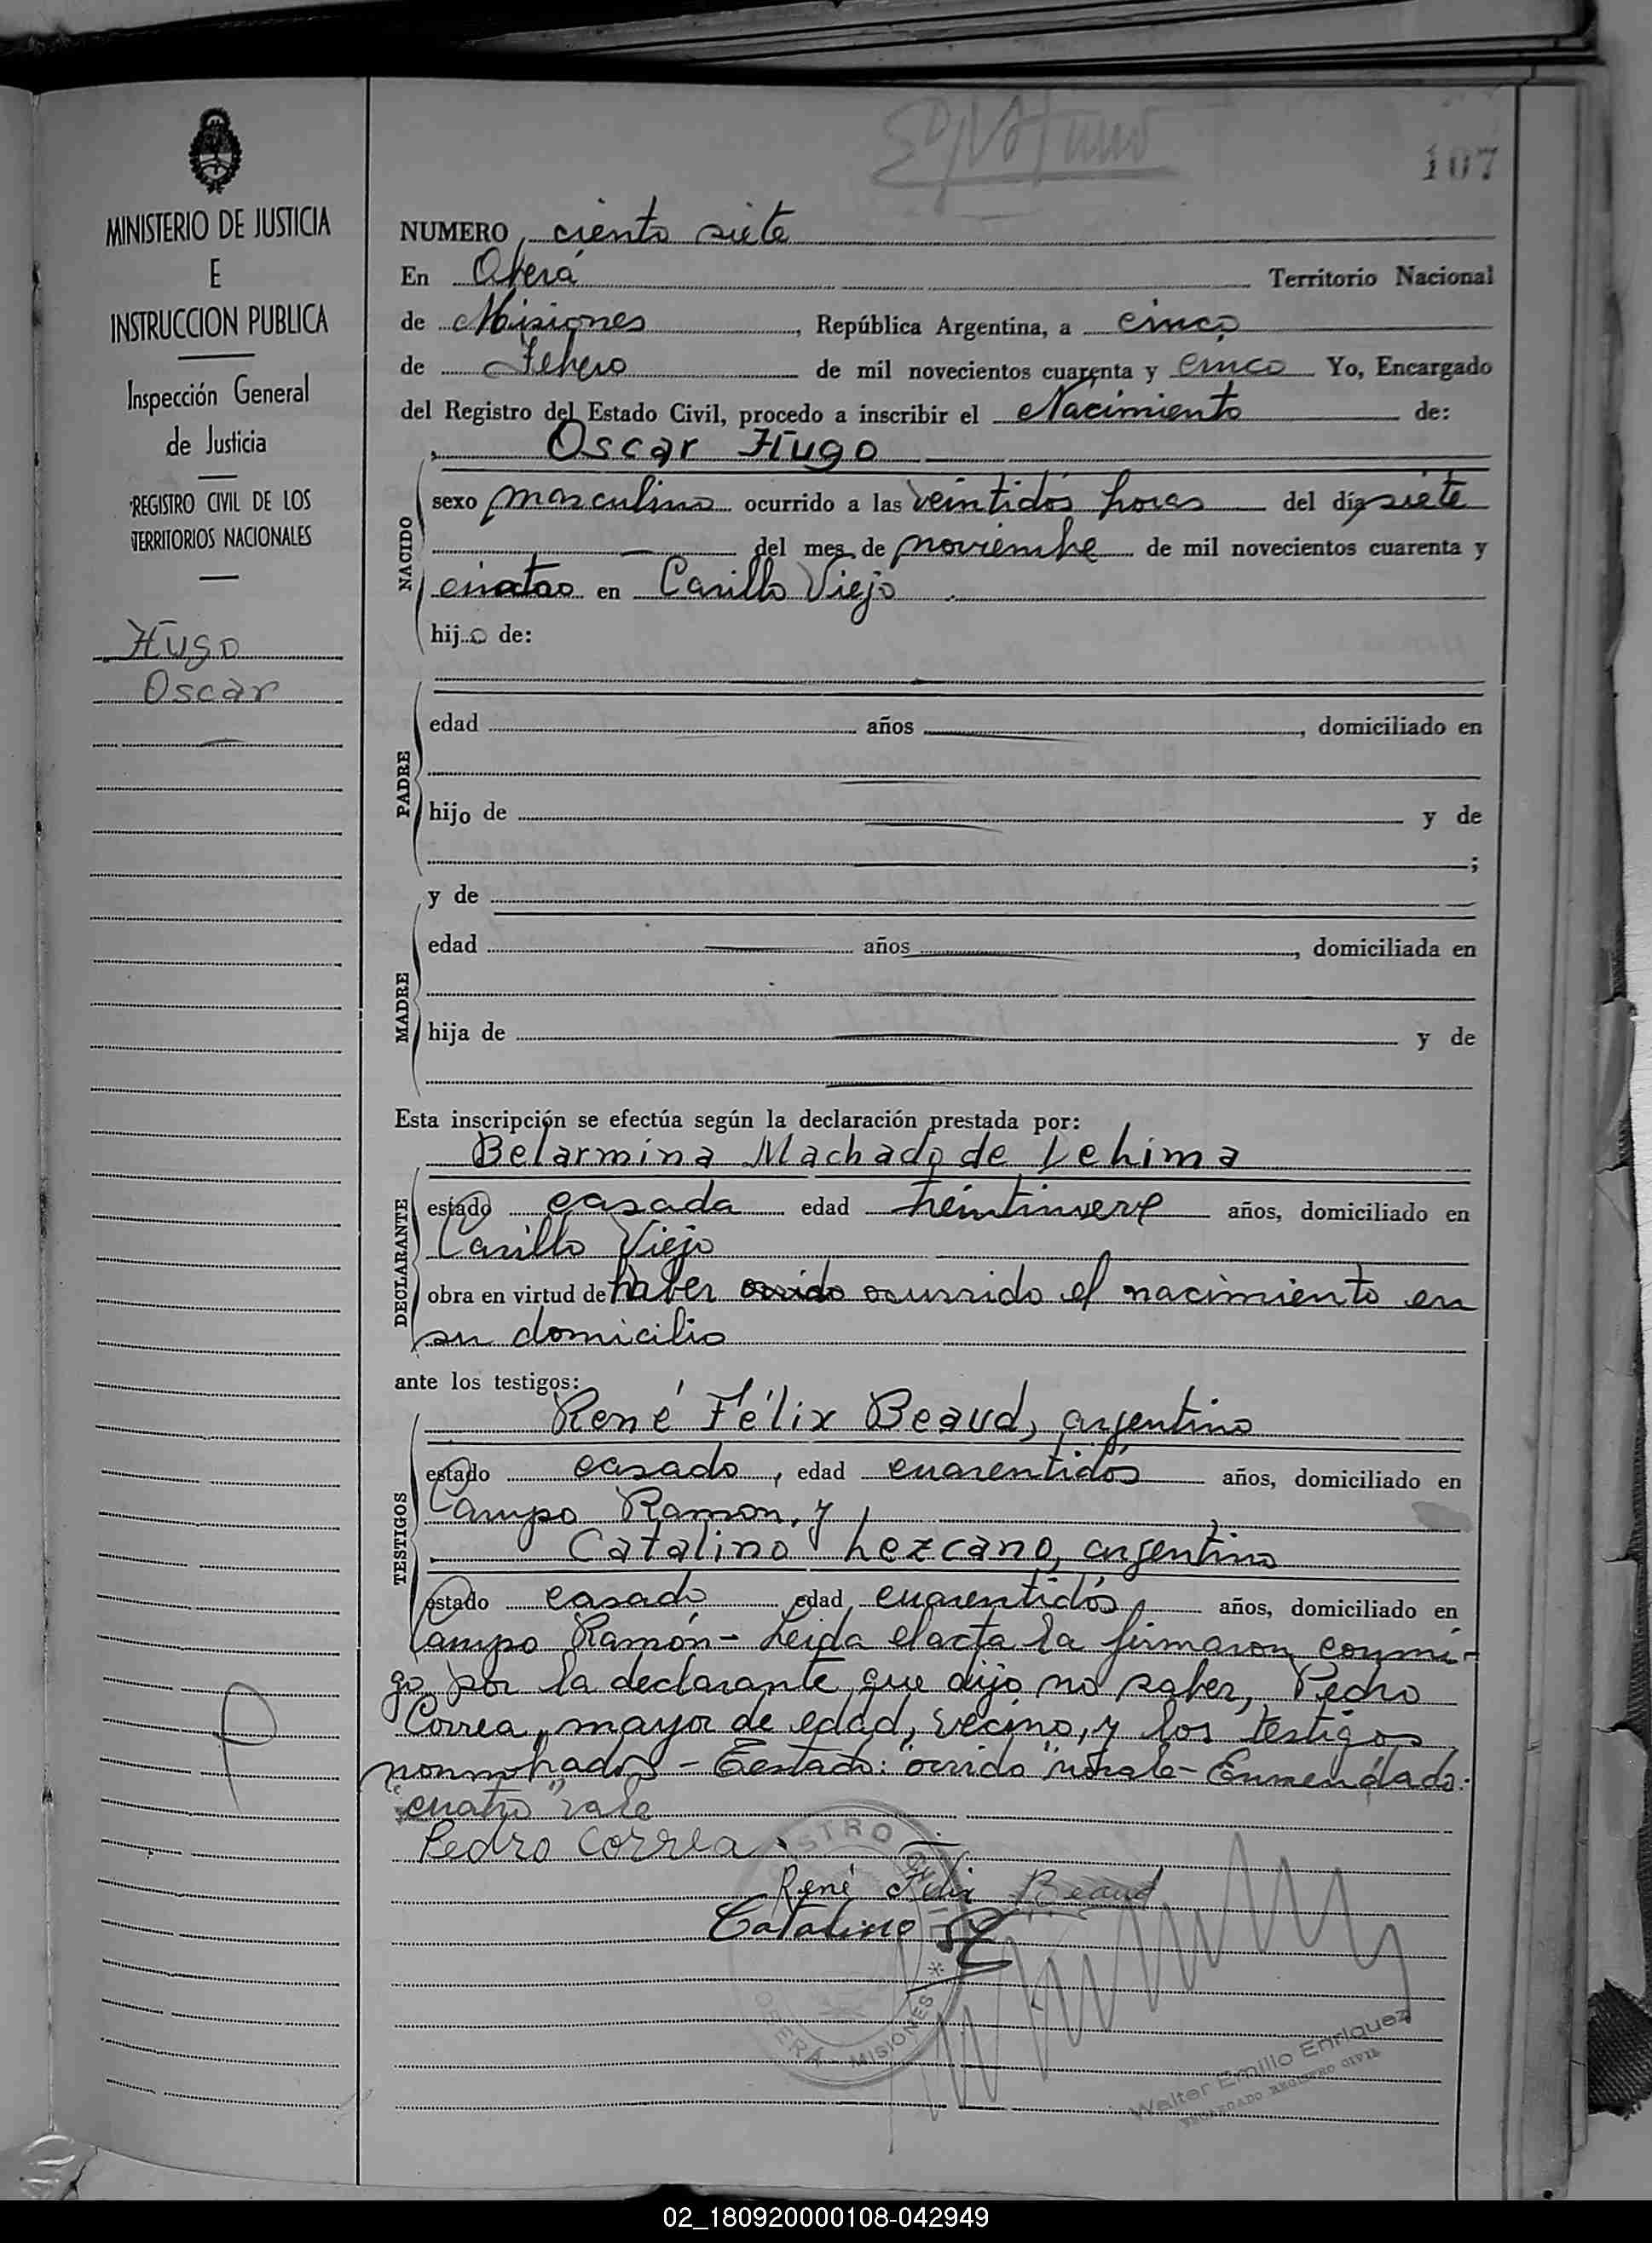 107
MINISTERIO DE JUSTICIA
E
INSTRUCCION PUBLICA
Inspección General
de Justicia
REGISTRO CIVIL DE LOS
TERRITORIOS NACIONALES
Hugo
Oscar
NUMERO ciento siete
En Oberá Territorio Nacional
de Misiones, República Argentina, a cinco
de Febrero de mil novecientos cuarenta y cinco Yo, Encargado
del Registro del Estado Civil, procedo a inscribir el Nacimiento de:
Oscar Hugo
NACIDO
sexo masculino ocurrido a las veintidós horas del día siete
del mes de noviembre de mil novecientos cuarenta y
cuatro en Carillo Viejo
hijo de:
PADRE
edad años, domiciliado en
hijo de y de
;
y de
MADRE
edad años, domiciliada en
hija de y de
Esta inscripción se efectúa según la declaración prestada por:
Belarmina Machado de
DECLARANTE
estado casada edad años, domiciliado en
Carillo Viejo
obra en virtud de haber ocurrido el nacimiento en
su domicilio
ante los testigos:
René Félix Beaud, argentino
TESTIGOS
estado casado, edad cuarentidós años, domiciliado en
Campo Ramon, y
Catalino Lezcano, argentino
estado casado edad cuarentidós años, domiciliado en
Campo Ramón - Leida el acta la firmaron conmi-
go, por la declarante que dijo no saber, Pedro
Correa, mayor de edad, vecino, y los testigos
nonmbrados - Testado: "orrido" no vale - Enmendado:
"cuatro" vale
Pedro Correa
René Felix Beaud
Catalino
OBERÁ - MISIONES
Walter Emilio Enriquez
ENCARGADO REGISTRO CIVIL
02_180920000108-042949